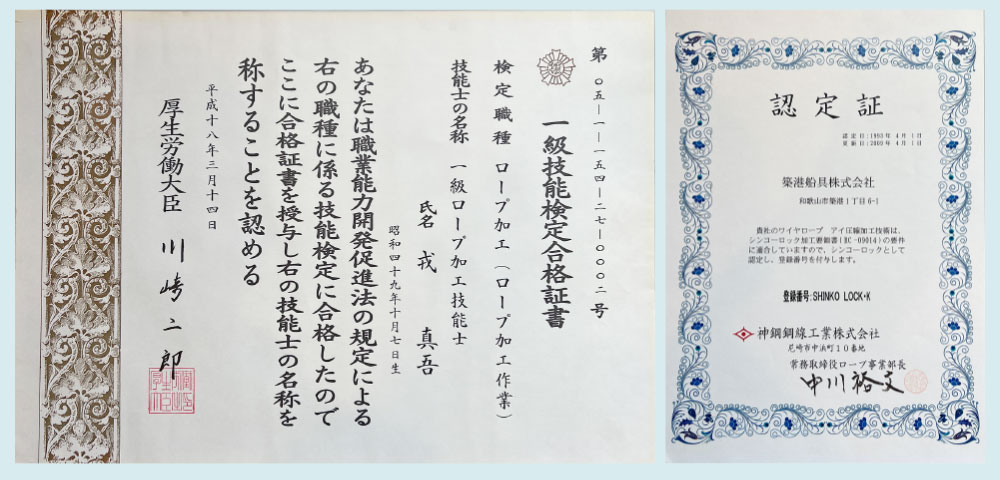 第〇五-一-一五四-二七-〇〇〇二号
一級技能検定合格証書
検定職種 ロープ加工（ロープ加工作業）
技能士の名称 一級ロープ加工技能士
氏名 戎 真吾
昭和四十九年十月七日生
あなたは職業能力開発促進法の規定による
右の職種に係る技能検定に合格したので
ここに合格証書を授与し右の技能士の名称を
称することを認める
平成十八年三月十四日
厚生労働大臣 川崎二郎
認定証
認定日:1993年 4月 1日
更新日:2009年 4月 1日
築港船具株式会社
和歌山市築港1丁目6-1
貴社のワイヤロープ アイ圧縮加工技術は、
シンコーロック加工要領書(RC-09014)の要件
に適合していますので、シンコーロックとして
認定し、登録番号を付与します。
登録番号:SHINKO LOCK・K
神鋼鋼線工業株式会社
尼崎市中浜町10番地
常務取締役ロープ事業部長
中川裕文